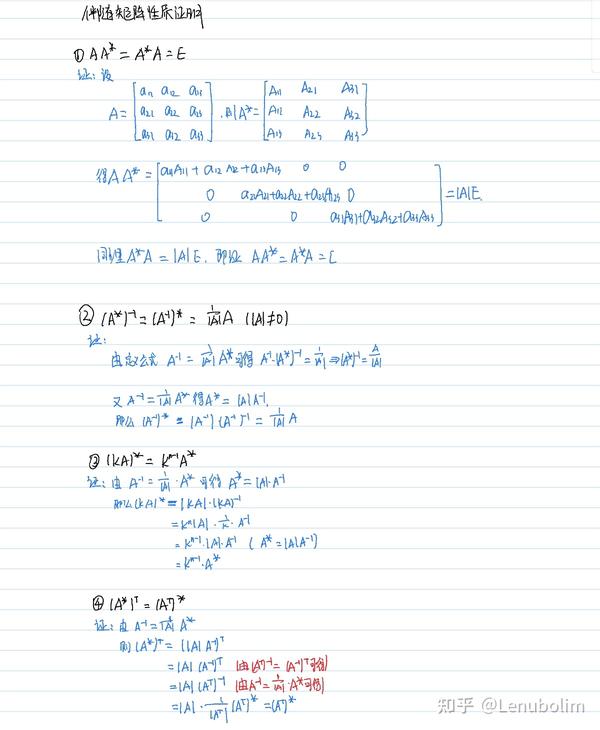 伴随矩阵性质证明
① AA* = A*A = E
证: 设
A = [a₁₁ a₁₂ a₁₃
a₂₁ a₂₂ a₂₃
a₃₁ a₃₂ a₃₃], 则A* = [A₁₁ A₂₁ A₃₁
A₁₂ A₂₂ A₃₂
A₁₃ A₂₃ A₃₃]
得AA* = [a₁₁A₁₁ + a₁₂A₁₂ + a₁₃A₁₃ 0 0
0 a₂₁A₂₁+a₂₂A₂₂+a₂₃A₂₃ 0
0 0 a₃₁A₃₁+a₃₂A₃₂+a₃₃A₃₃] = |A|E.
同理A*A = |A|E. 即证 AA* = A*A = E
② (A*)⁻¹ = (A⁻¹)* = 1/|A| A (|A|≠0)
证:
由定义式 A⁻¹ = 1/|A| A* 可得 A⁻¹·(A*)⁻¹ = 1/|A| ⇒ (A*)⁻¹ = A/|A|
又 A⁻¹ = 1/|A| A* 得A* = |A|A⁻¹,
那么 (A⁻¹)* = |A⁻¹|(A⁻¹)⁻¹ = 1/|A| A
③ (kA)* = kⁿ⁻¹A*
证: 由 A⁻¹ = 1/|A| · A* 可得 A* = |A|·A⁻¹
那么(kA)* = |kA|·(kA)⁻¹
= kⁿ|A| · 1/k · A⁻¹
= kⁿ⁻¹·|A|·A⁻¹ (A* = |A|A⁻¹)
= kⁿ⁻¹·A*
④ (A*)ᵀ = (Aᵀ)*
证: 由 A⁻¹ = 1/|A| A*
则 (A*)ᵀ = (|A|A⁻¹)ᵀ
= |A|(A⁻¹)ᵀ (由(Aᵀ)⁻¹ = (A⁻¹)ᵀ可得)
= |A|(Aᵀ)⁻¹ (由A⁻¹ = 1/|A|·A*可得)
= |A| · 1/|Aᵀ| (Aᵀ)* = (Aᵀ)*
知乎 @Lenubolim